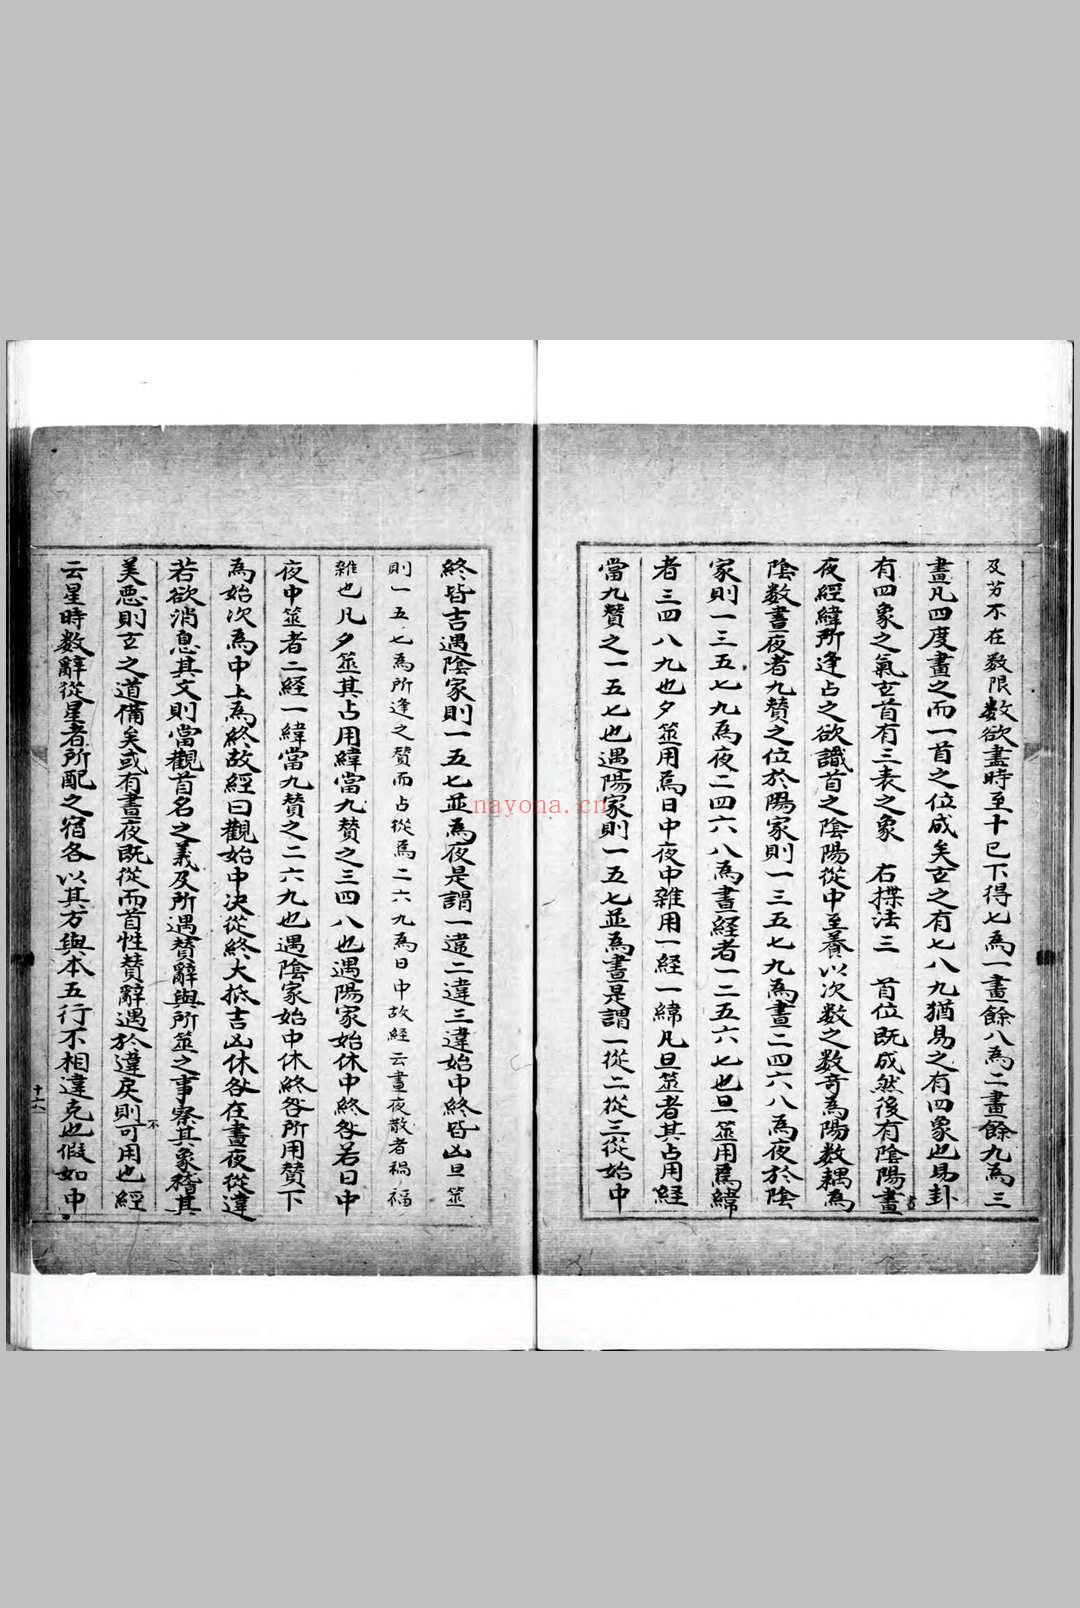 及艻不在数限數欲盡時至十已下得七為一畫餘八為二畫餘九為三
畫凡四度畫之而一首之位成矣玄之有七八九猶易之有四象也易卦
有四象之氣玄首有三表之象 右揲法三 首位既成然後有陰陽晝
夜經緯所逢占之欲識首之陰陽從中至養以次數之数奇為陽数耦為
陰数晝夜者九赞之位於陽家則一三五七九為晝二四六八為夜於陰
家則一三五七九為夜二四六八為晝経者一二五六七也旦筮用焉緯
者三四八九也夕筮用焉日中夜中雜用一経一緯凡旦筮者其占用経
當九赞之一五七也遇陽家則一五七並為晝是謂一從二從三從始中
終皆吉遇陰家則一五七並為夜是謂一違二違三違始中終皆凶旦筮
則一五七為所逢之赞而占從焉二六九為日中故経云晝夜散者禍福
雜也凡夕筮其占用緯當九赞之三四八也遇陽家始休中終咎若日中
夜中筮者二経一緯當九赞之二六九也遇陰家始中休終咎所用赞下
為始次為中上為終故經曰觀始中决從終大抵吉凶休咎在晝夜從違
若欲消息其文則當觀首名之義及所遇赞辭與所筮之事察其象稽其
美惡則玄之道備矣或有晝夜既從而首性赞辭遇於違戾則不可用也經
云星時数辭從星者所配之宿各以其方與本五行不相違克也假如中
十六
nayona.cn